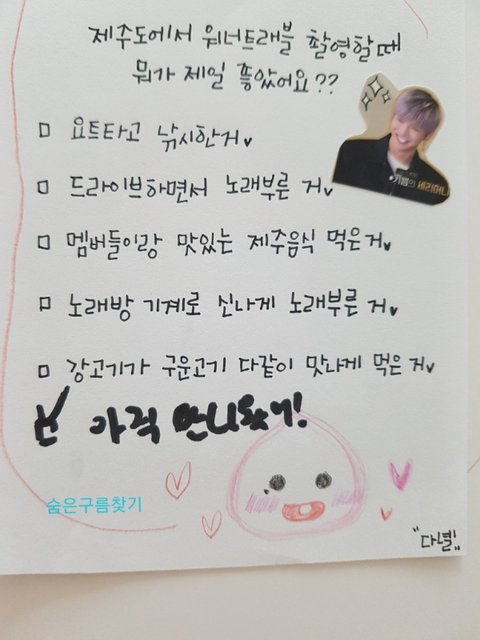 제주도에서 워너트래블 촬영할때
뭐가 제일 좋았어요??
요트타고 낚시한거
드라이브하면서 노래부른 거
기쁨의 세리머니
멤버들이랑 맛있는 제주음식 먹은거
노래방 기계로 신나게 노래부른 거
강고기가 구운고기 다같이 맛나게 먹은 거
아직 안나왔어!
숨은구름찾기
"다녤"